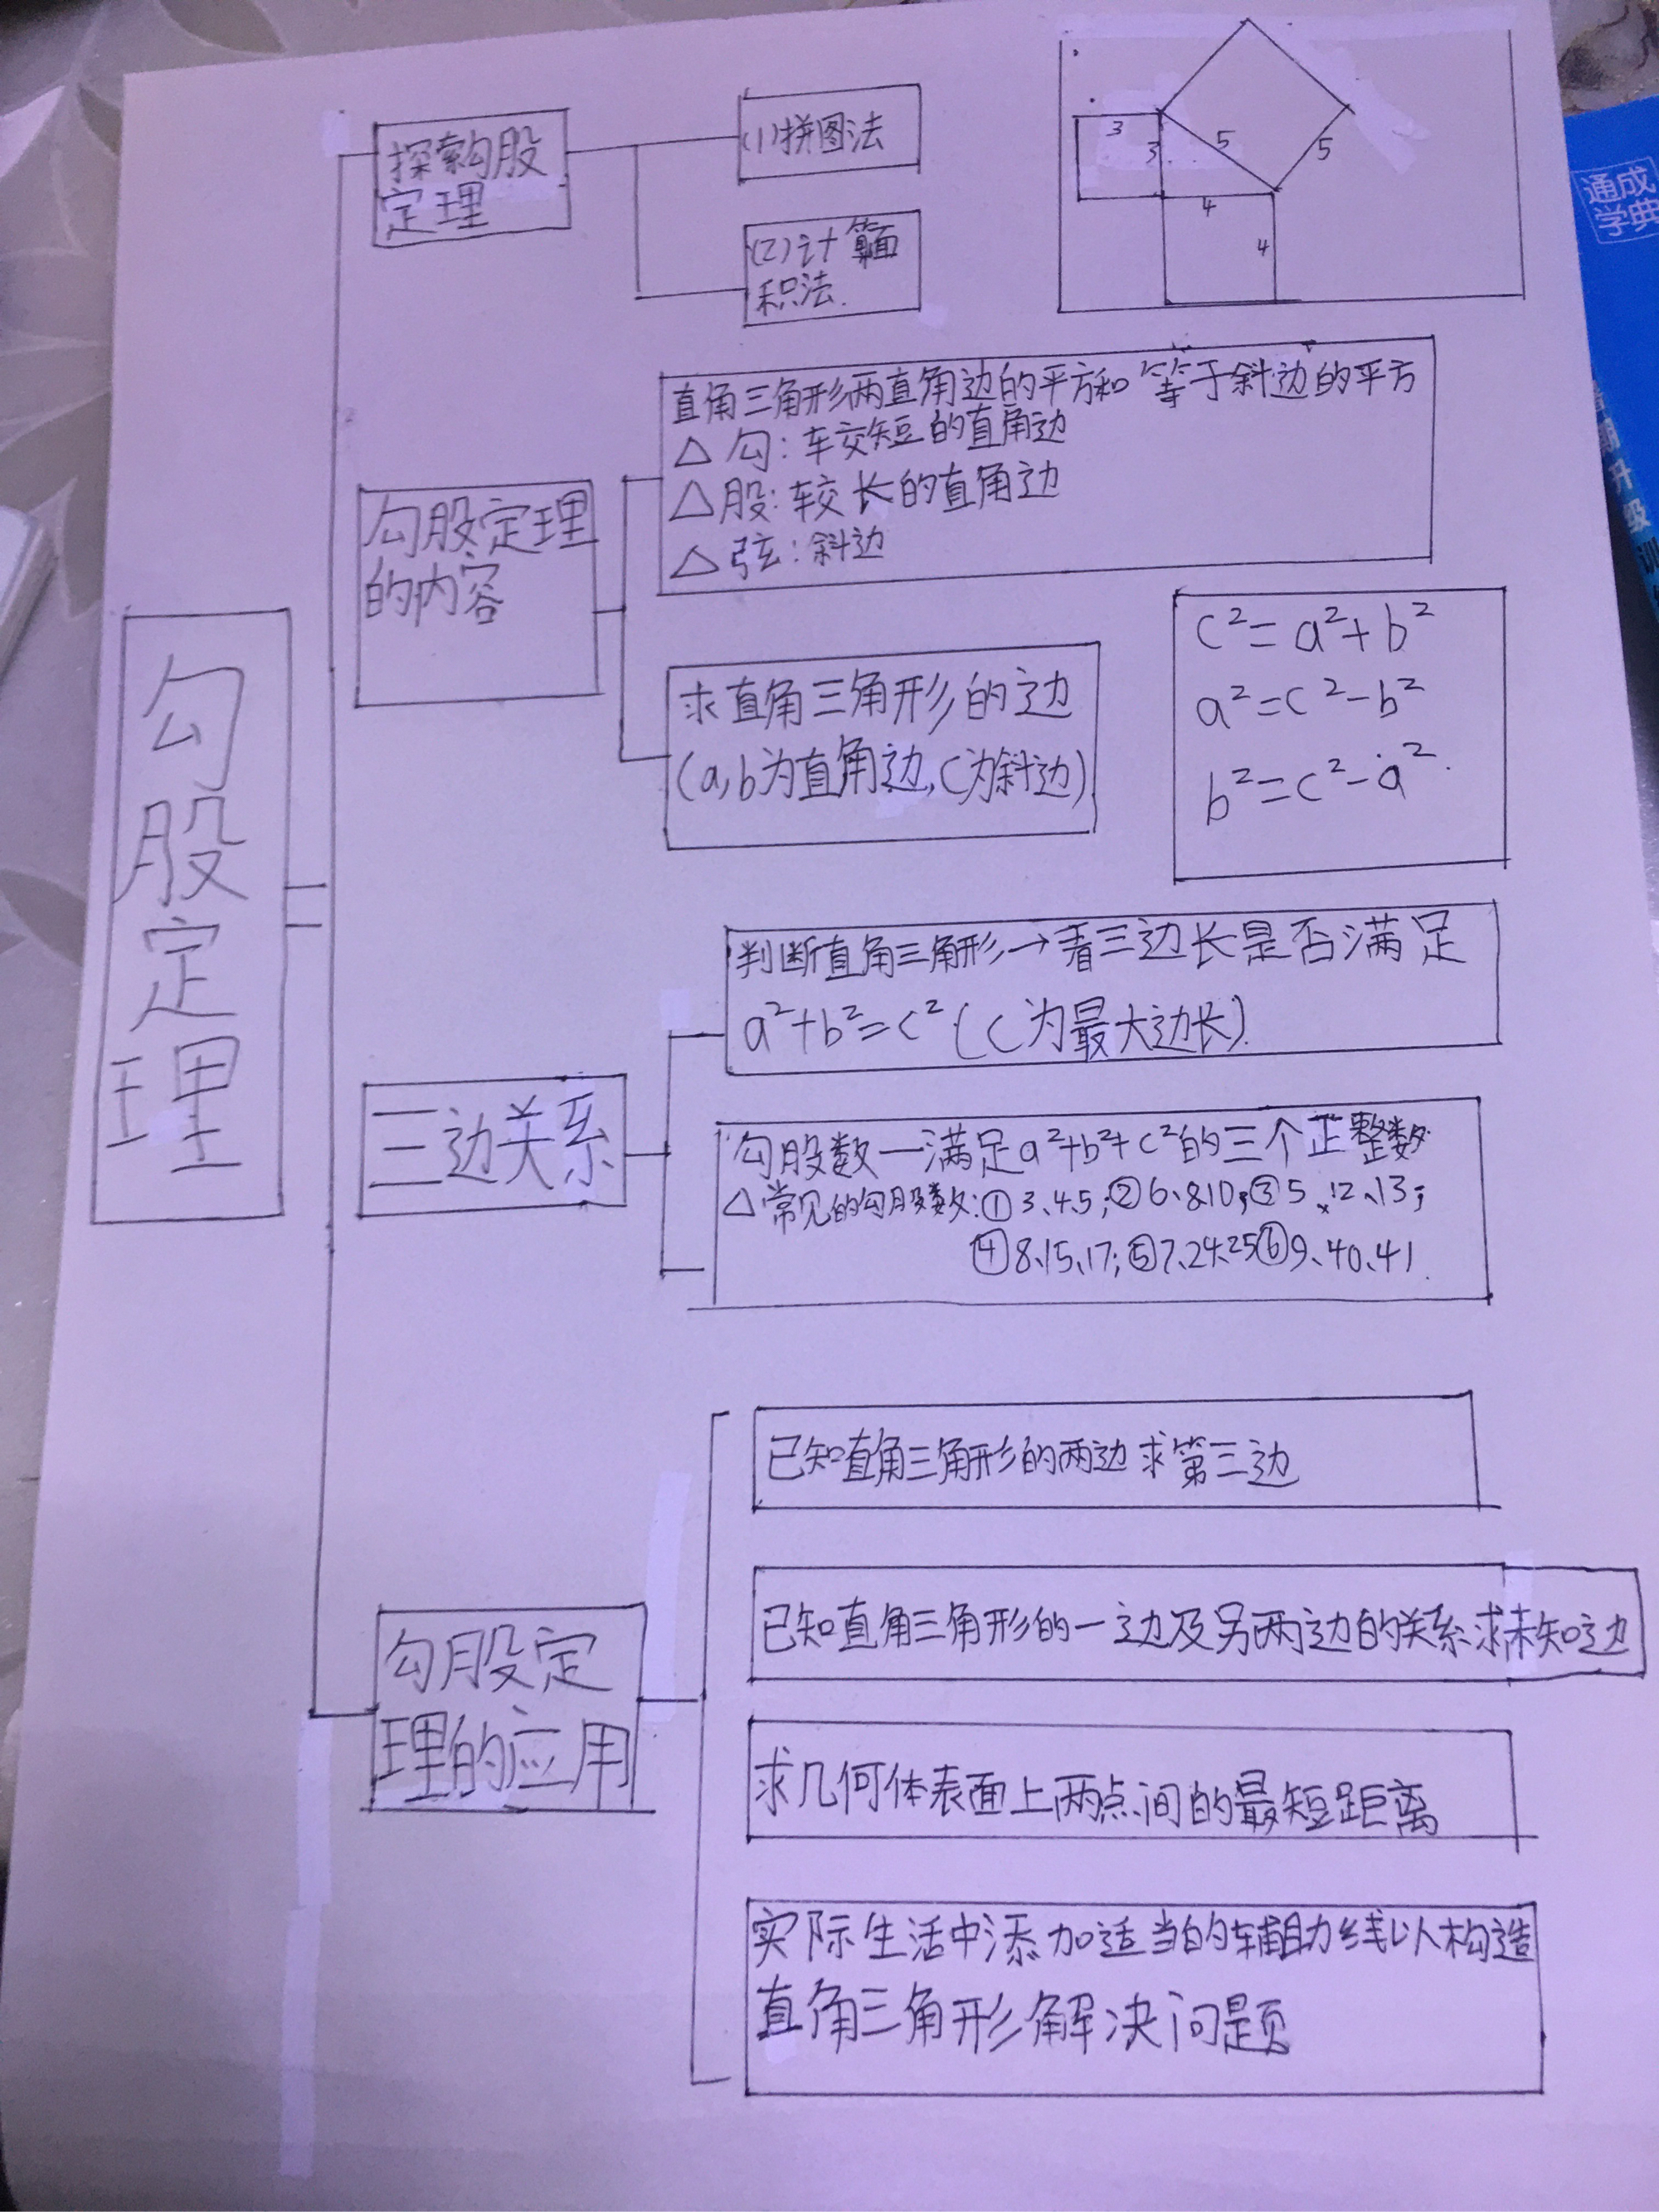 勾股定理
探索勾股
定理
(1)拼图法
(2)计算面
积法.
3
3
5
5
4
4
勾股定理
的内容
直角三角形两直角边的平方和等于斜边的平方
△勾:较短的直角边
△股:较长的直角边
△弦:斜边
求直角三角形的边
(a,b为直角边,C为斜边)
c²=a²+b²
a²=c²-b²
b²=c²-a².
三边关系
判断直角三角形→看三边长是否满足
a²+b²=c²(C为最大边长).
勾股数—满足a²+b²+c²的三个正整数
△常见的勾股数:①3、4.5;②6、8.10;③5、12、13;
④8、15、17;⑤7、24、25⑥9、40、41.
勾股定
理的应用
已知直角三角形的两边求第三边
已知直角三角形的一边及另两边的关系求未知边
求几何体表面上两点间的最短距离
实际生活中添加适当的辅助线以构造
直角三角形解决问题
通成
学典
升
级
训